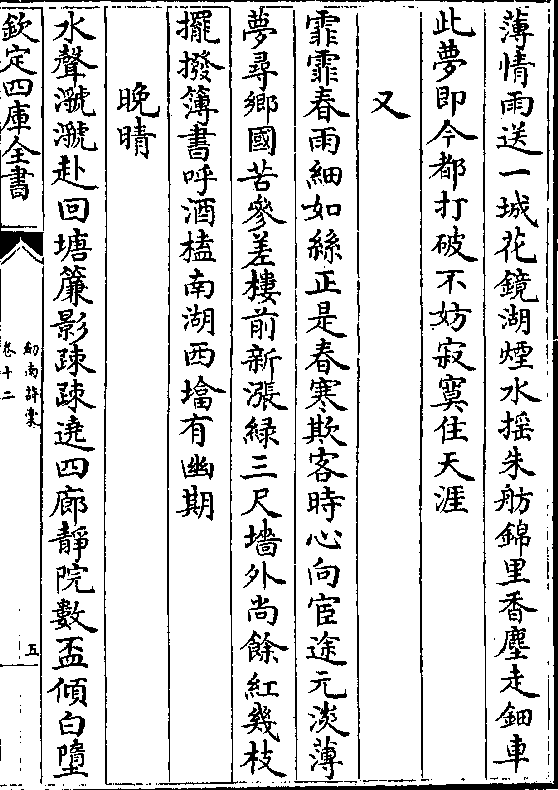 薄情雨送一城花鏡湖煙水揺朱舫錦里香塵走鈿車
此夢即今都打破不妨寂寞住天涯
又
霏霏春雨細如絲正是春寒欺客時心向宦途元淡薄
夢尋鄉國苦參差樓前新漲緑三尺墻外尚餘紅幾枝
擺撥簿書呼酒榼南湖西㙮有幽期
晚晴
水聲㶁㶁赴回塘簾影疎疎遶四廊靜院數盃傾白墮
欽定四庫全書
劍南詩稾
卷十二
五